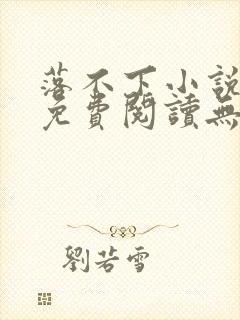 落不下小說
免費閱讀無
劉若雪